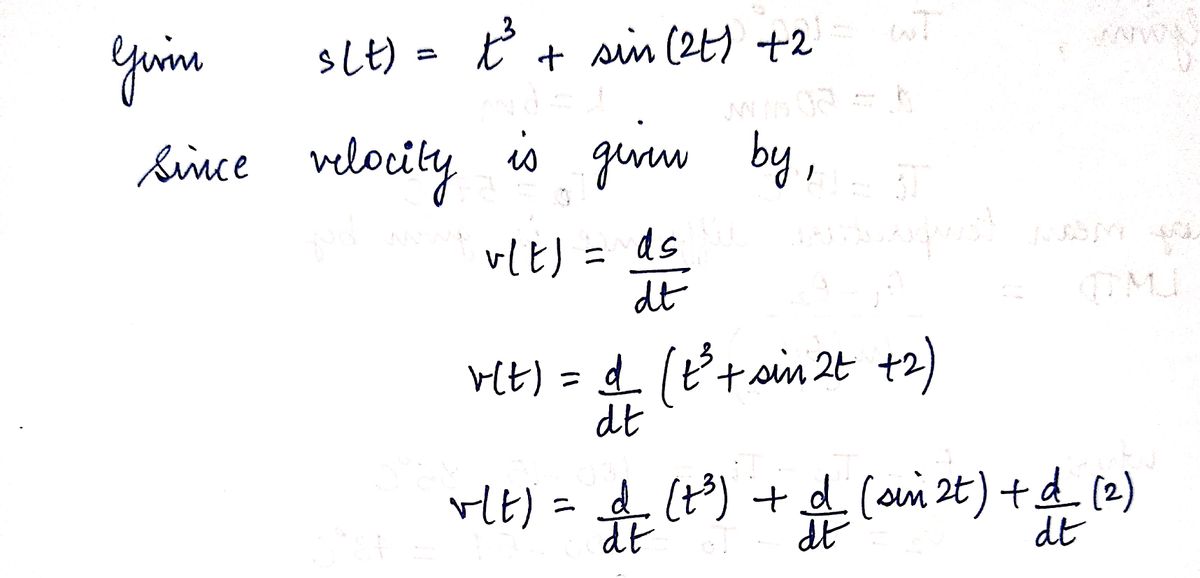 Given s(t) = t³ + sin(2t) + 2
Since velocity is given by,
v(t) = ds/dt
v(t) = d/dt (t³ + sin 2t + 2)
v(t) = d/dt (t³) + d/dt (sin 2t) + d/dt (2)